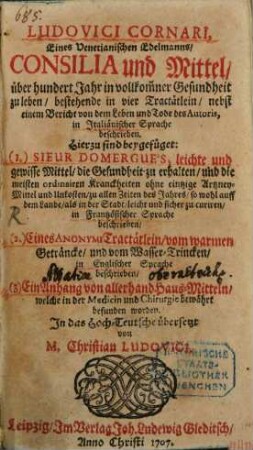 685.
LUDOVICI CORNARI,
Eines Venetianischen Edelmanns/
CONSILIA und Mittel/
über hundert Jahr in vollkom̃ner Gesundheit
zu leben/ bestehende in vier Tractätlein/ nebst
einem Bericht von dem Leben und Tode des Autoris,
in Italiänischer Sprache
beschrieben.
Hierzu sind beygefüget:
(1.) SIEUR DOMERGUE'S, leichte und
gewisse Mittel/ die Gesundheit zu erhalten/ und die
meisten ordinairen Kranckheiten ohne eintzige Artzney-
Mittel und Unkosten/ zu allen Zeiten des Jahres/ so wohl auff
dem Lande/ als in der Stadt/ leicht und sicher zu curiren/
in Frantzösischer Sprache
beschrieben/
(2.) Eines ANONYMI Tractätlein/ vom warmen
Geträncke/ und vom Wasser-Trincken/
in Englischer Sprache
beschrieben/
(3.) Ein Anhang von allerhand Haus-Mitteln/
welche in der Medicin und Chirurgie bewährt
befunden worden.
In das Hoch-Teutsche übersetzt
von
M. Christian LUDOVICI.
STAATS-
BIBLIOTHEK
MUENCHEN
Leipzig/ Im Verlag Joh. Ludewig Gleditsch/
Anno Christi 1707.